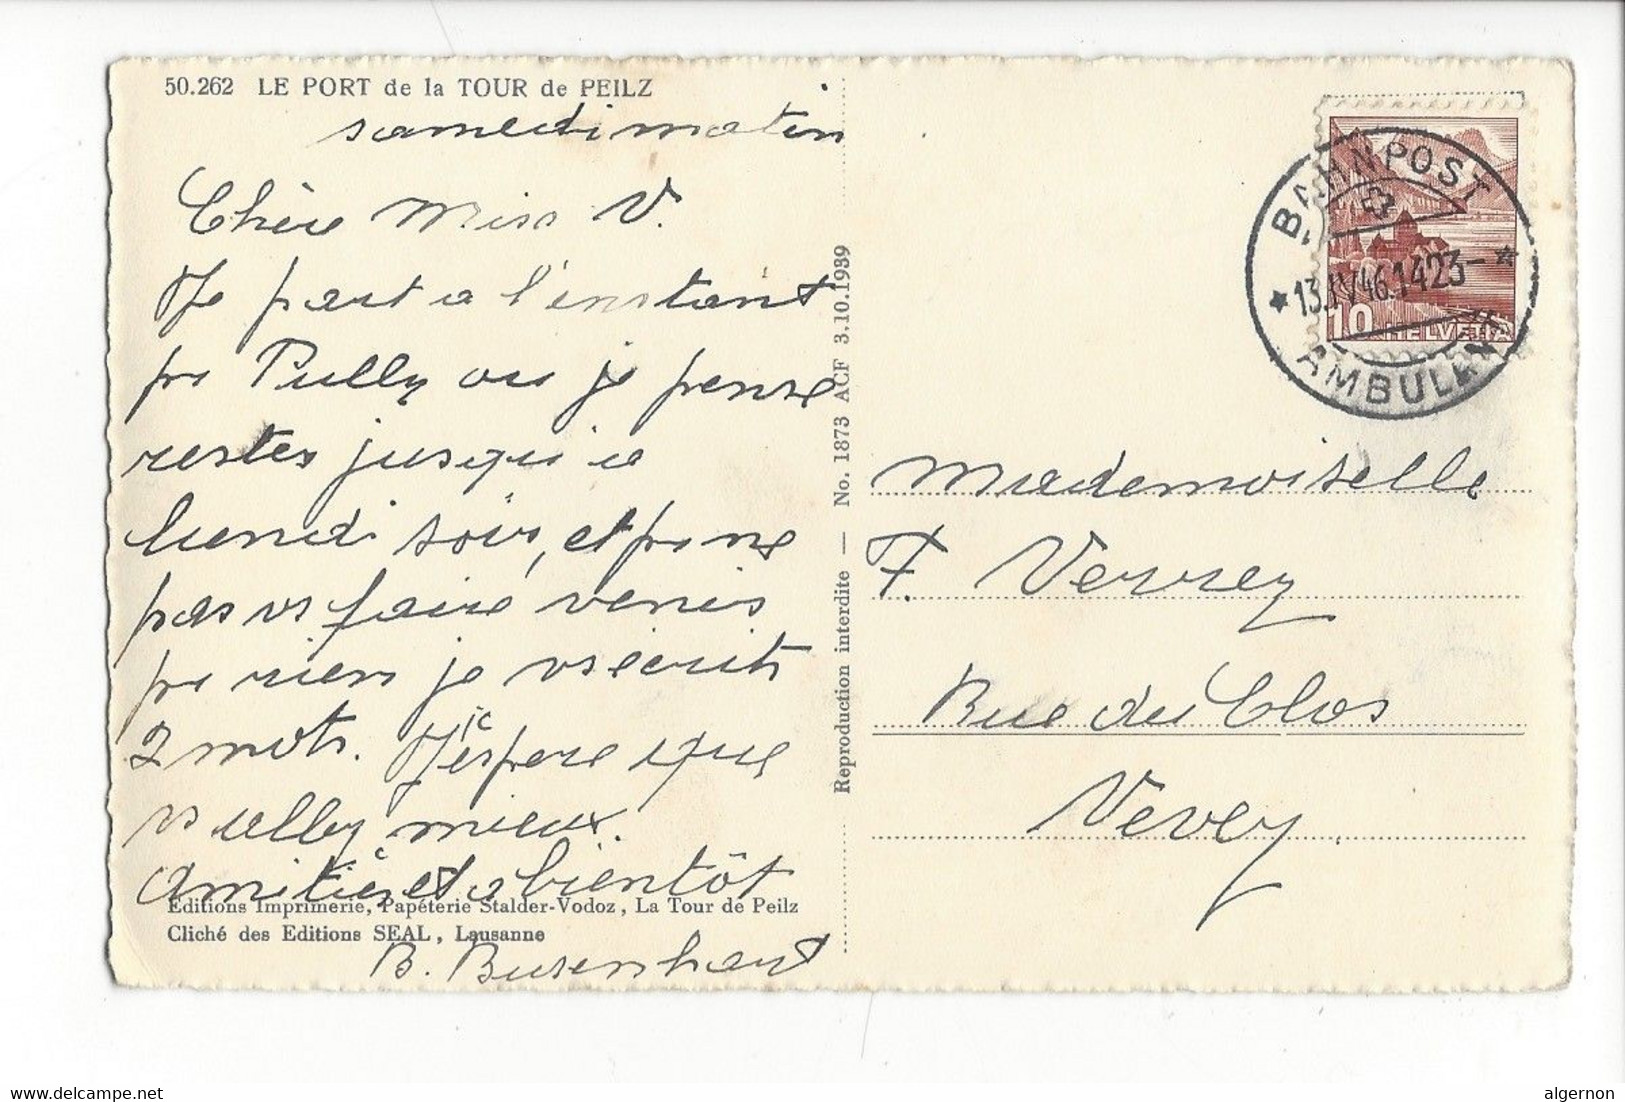 50.262 LE PORT de la TOUR de PEILZ
samedi matin
Chère Miss V.
Je part a l'instant
pr Pully ou je pense
restes jusqu'a
lundi soir, et pr ne
pas vs faire venis
pr rien je vs écrits
2 mots. J'espere que
vs allez mieux.
Amitiés et a bientôt
Editions Imprimerie, Papéterie Stalder-Vodoz, La Tour de Peilz
Cliché des Editions SEAL, Lausanne
B. Busenhart
Reproduction interdite — No. 1873 ACF 3.10.1939
BAHNPOST
13.IV.46.1423–
AMBULANT
10 HELVETIA
Mademoiselle
F. Verrey
Rue du Clos
Vevey.
delcampe.net
algernon